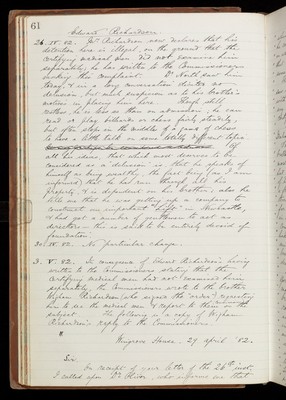 61
Edward Richardson
26. IV. 02. Mr Richardson now declares that his
detention here is illegal, on the ground that the
certifying medical men did not examine him
separately; he has written to the Commissioners
making this complaint. Dr North saw him
today, & in a long conversation elicited no
delusion, but much suspicion as to his brother's
motives in placing him here. Though still
restless, he is less so than on admission; he can
read or play billiards or chess fairly steadily,
but often stops in the middle of a game of chess
to have a little talk on some totally different topic
Of
all his ideas, that which most deserves to be
considered as a delusion is that he speaks of
himself as being wealthy, the fact being (as I am
informed) that he has run through all his
property, & is dependent on his brother; also he
tells me that he was getting up a company to
construct an important in Newcastle,
& had got a number of gentlemen to act as
directors - this is said to be entirely devoid of
foundation.
30. IV. 02. No particular change.
3. V. 02. In consequence of Edward Richardson's having
written to the Commissioners stating that the
certifying medical men had not examined him
separately, the Commissioners wrote to the brother
Wigham Richardson, who signed the 'order', requesting
him to see the medical men & report to the Commrs on the
subject. The following is a copy of Wigham
Richardson's reply to the Commissioners.
"
Wingrove House. 29 April 02.
Sir,
On receipt of your letter of the 26th inst.
I called upon Dr Oliver, who informs me that